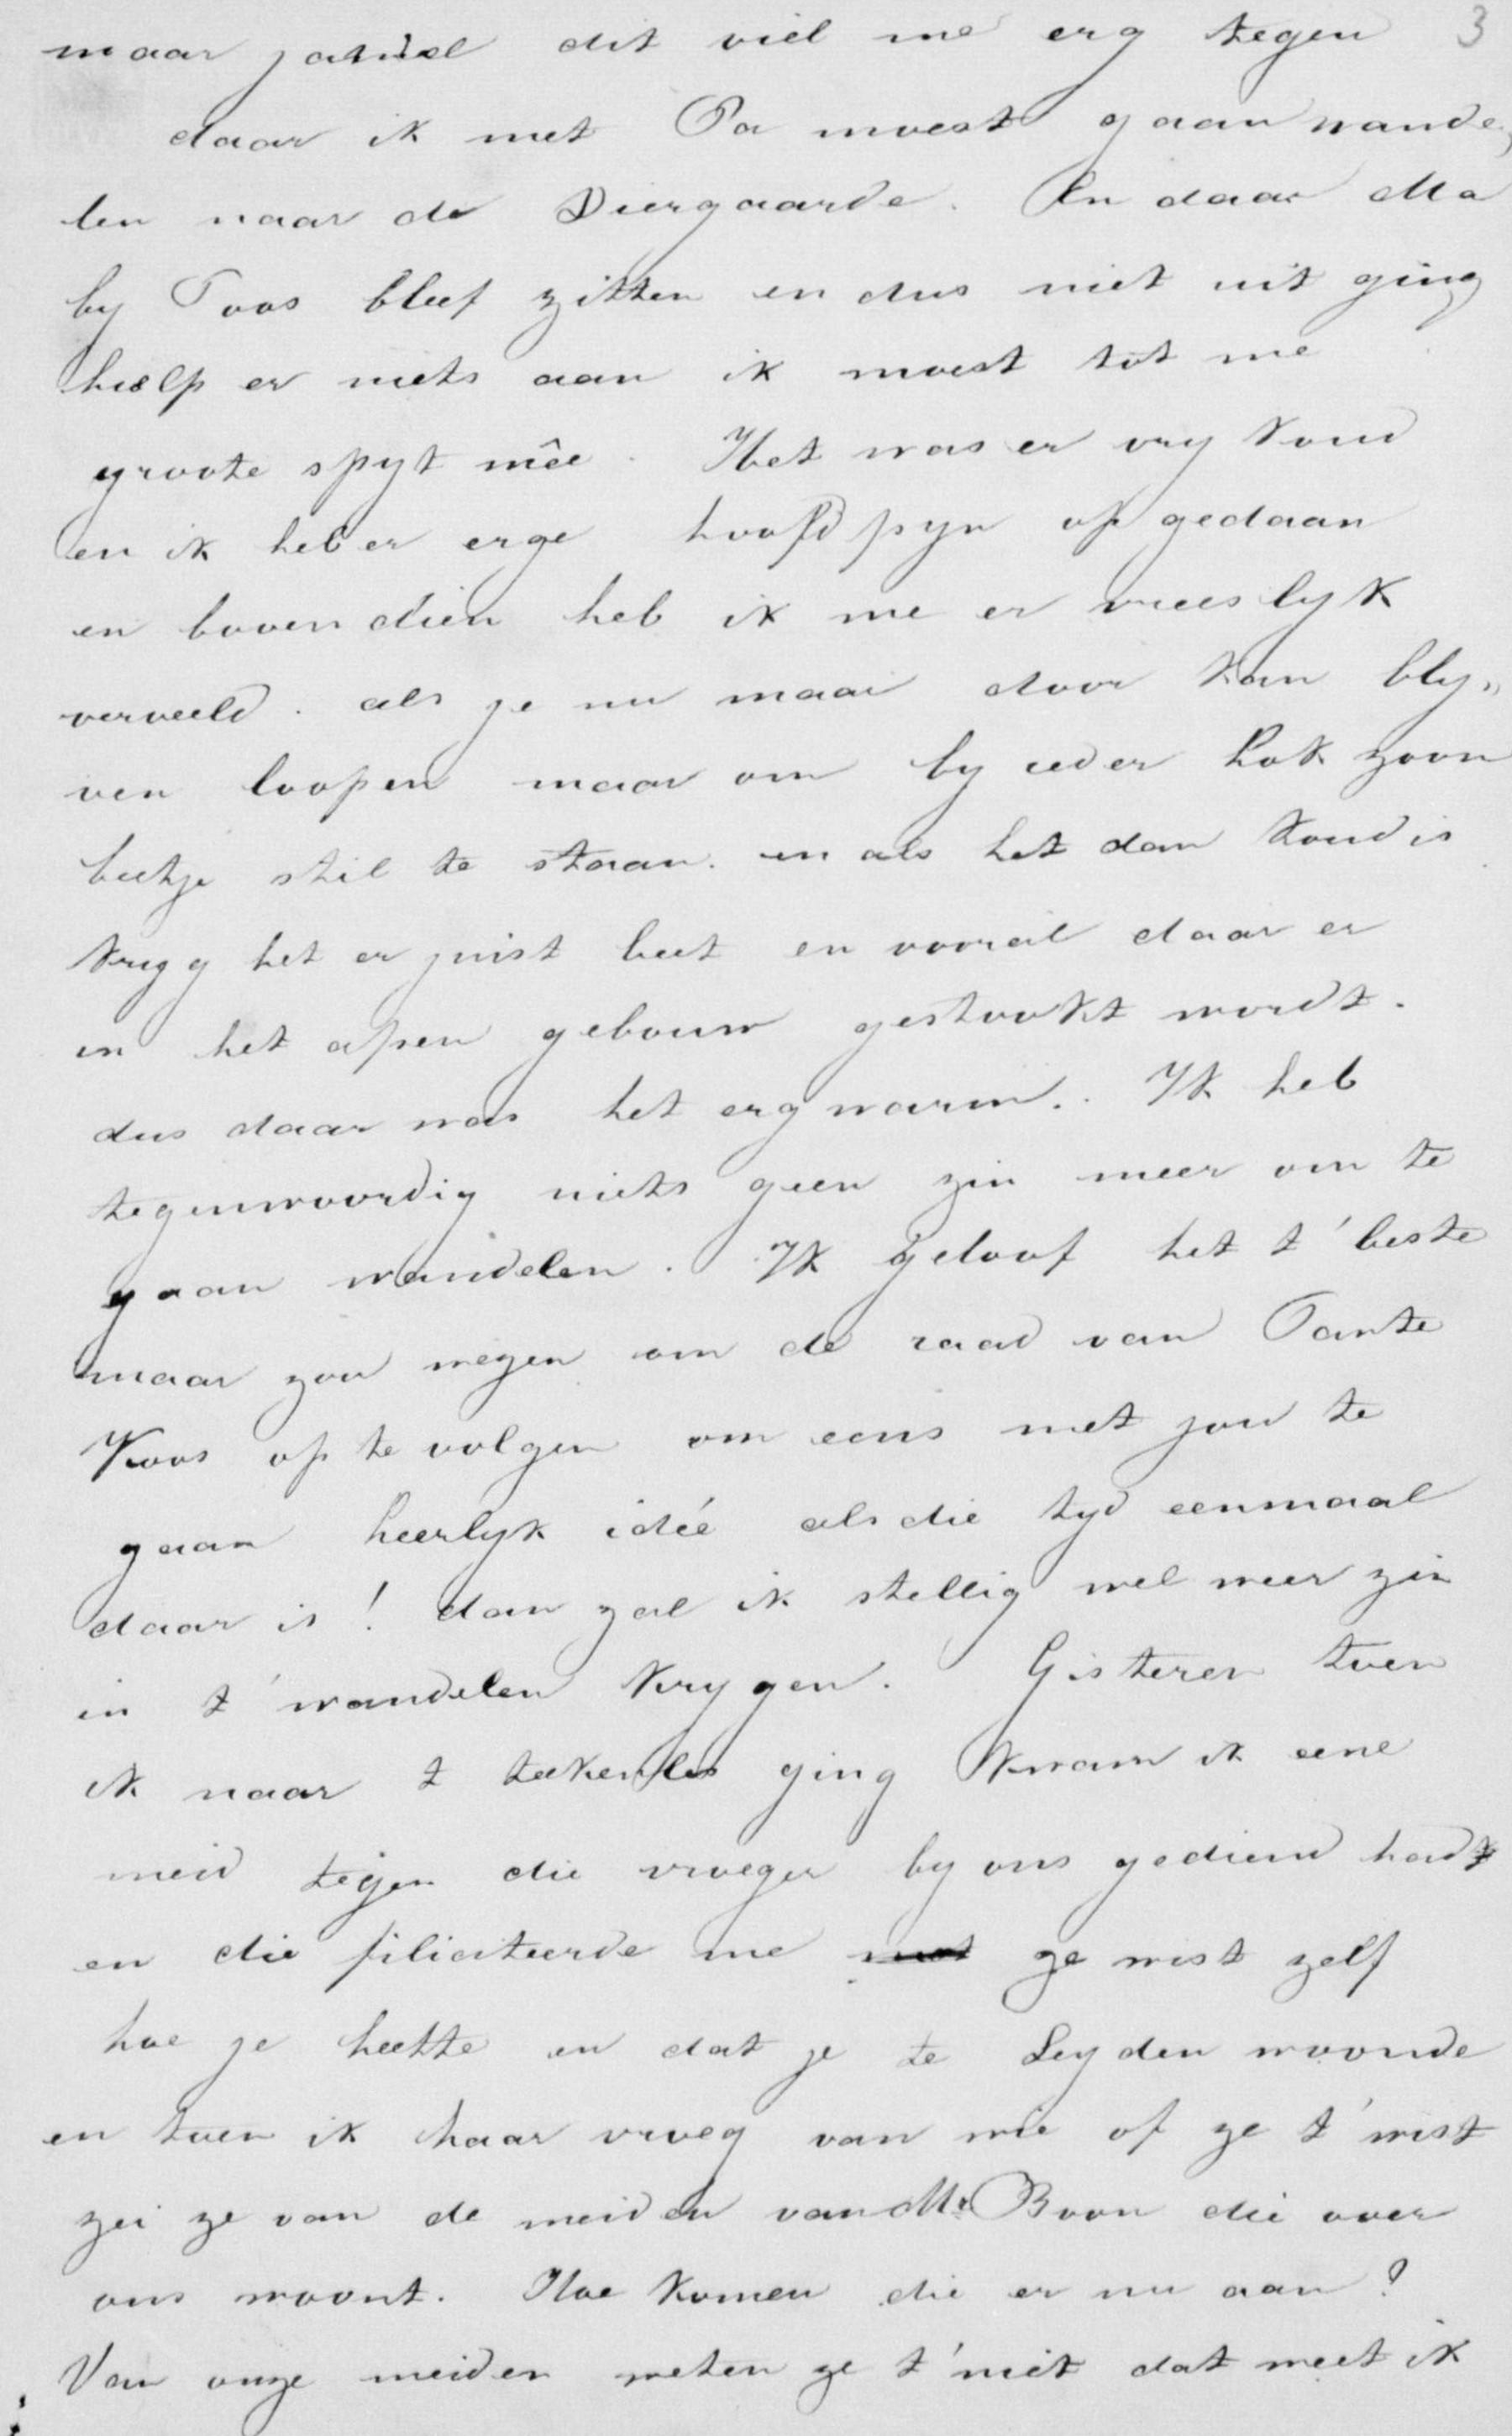 maar jawel dit viel me erg tegen 3
daar ik met Pa moest gaan wande,
len naar de Diergaarde. En daar Ma
by Toos bleef zitten en dus niet uit ging
hielp er niets aan ik moest tot me
groote spyt mêe. Het was er vry koud
en ik heb er erge hoofdpyn op gedaan
en bovendien heb ik me er vreeslyk
verveeld. als je nu maar door kan bly„
ven loopen maar om by ieder hok zoon
beetje stil te staan. en als het dan koud is
kryg het er juist beet en vooral daar er
in het apen gebouw gestookt wordt.
dus daar was het erg warm. Ik heb
tegenwoordig niets geen zin meer om te
gaan wandelen. Ik geloof het t' beste
maar zou wezen om de raad van Tante
Koos op te volgen om eens met jou te
gaan heerlyk idée als die tyd eenmaal
daar is! dan zal ik stellig wel meer zin
in t' wandelen krygen. Gisteren toen
ik naar t teekenles ging kwam ik eene
meid tegen die vroeger by ons gediend hadt
en die filiciteerde me met ze wist zelf
hoe je heette en dat je te Leyden woonde
en toen ik haar vroeg van wie of ze t' wist
zei ze van de meiden van Mr Boon die over
ons woont. Hoe komen die er nu aan?
Van onze meiden weten ze t' niet dat weet ik